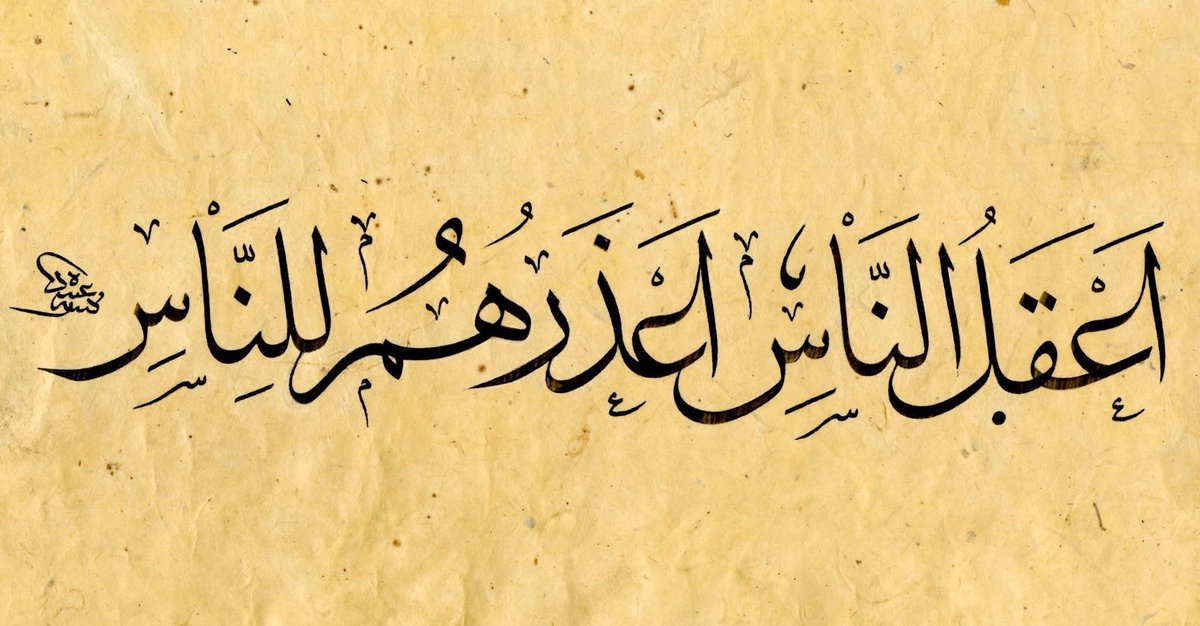 اَعْقَلُ النَّاسِ اَعْذَرُهُمْ لِلنَّاسِ